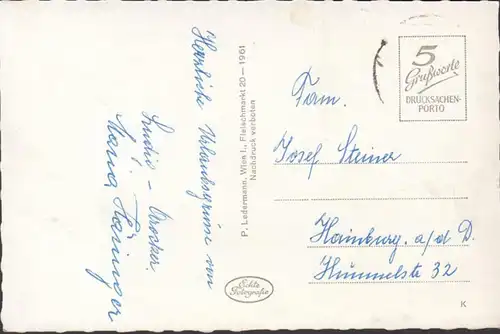 Herzliche Urlaubsgrüsse von
Maria
P. Ledermann, Wien I., Fleischmarkt 20 — 1961
Nachdruck verboten
Echte
Fotografie
5
Grußworte
DRUCKSACHEN-
PORTO
Fam.
Josef Steiner
Hainburg. a/d D.
Hummelstr 32
K